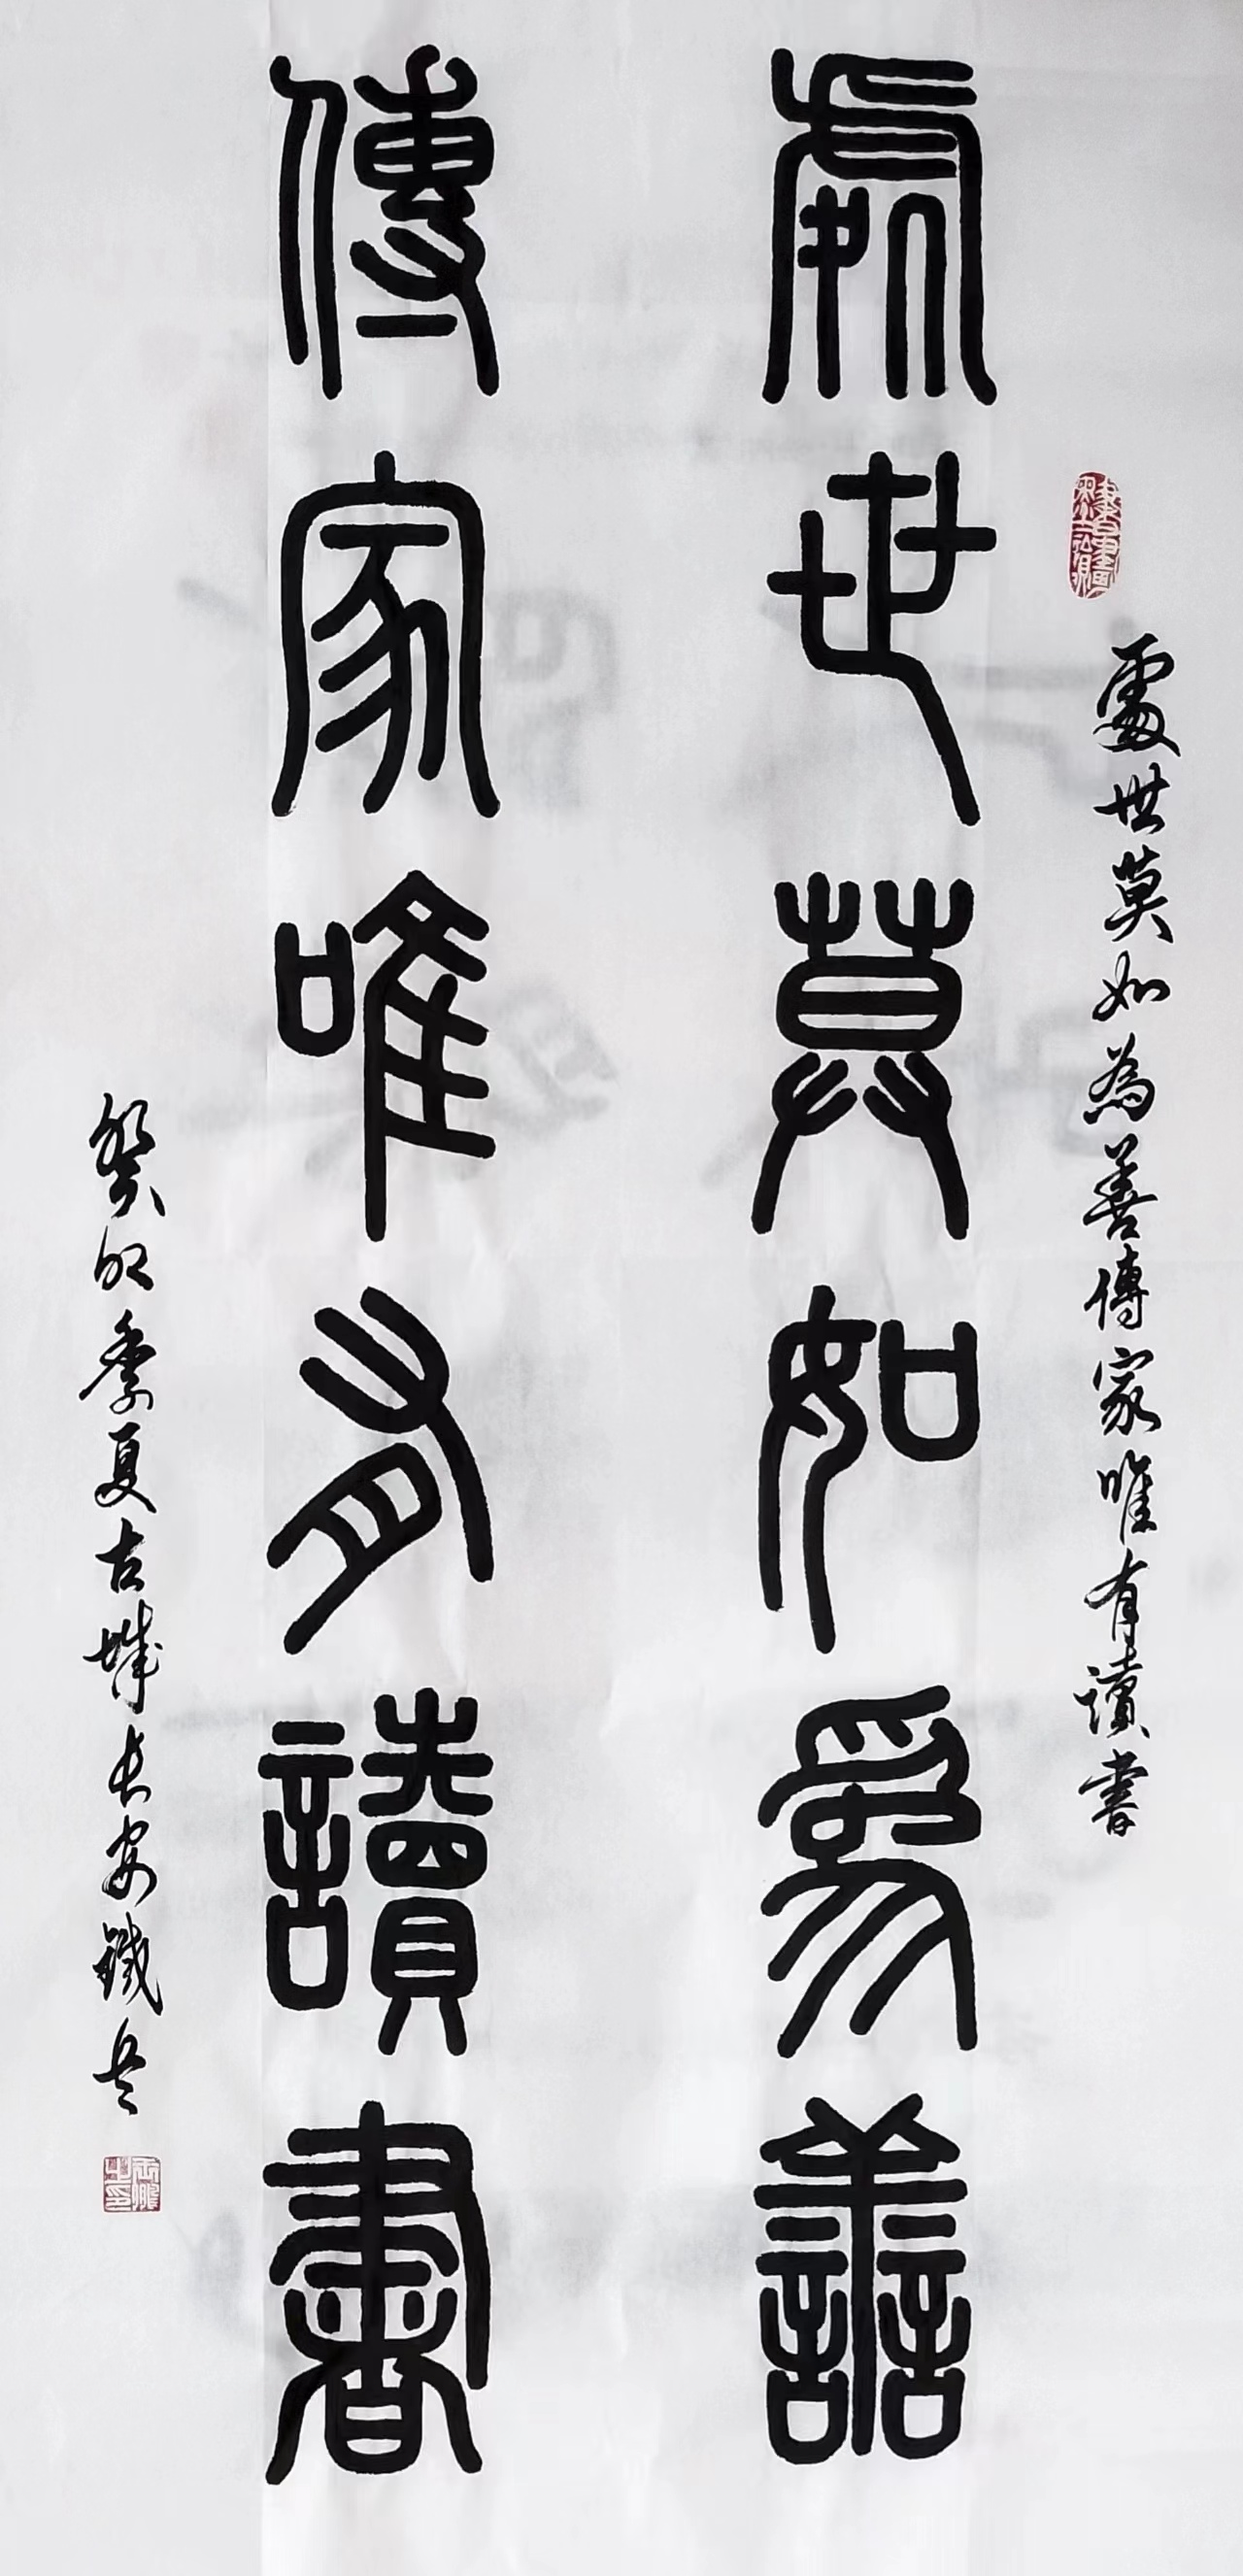 處世莫如為善傳家唯有讀書
處世莫如爲善
傳家唯有讀書
癸卯季夏古城長安鐵兵